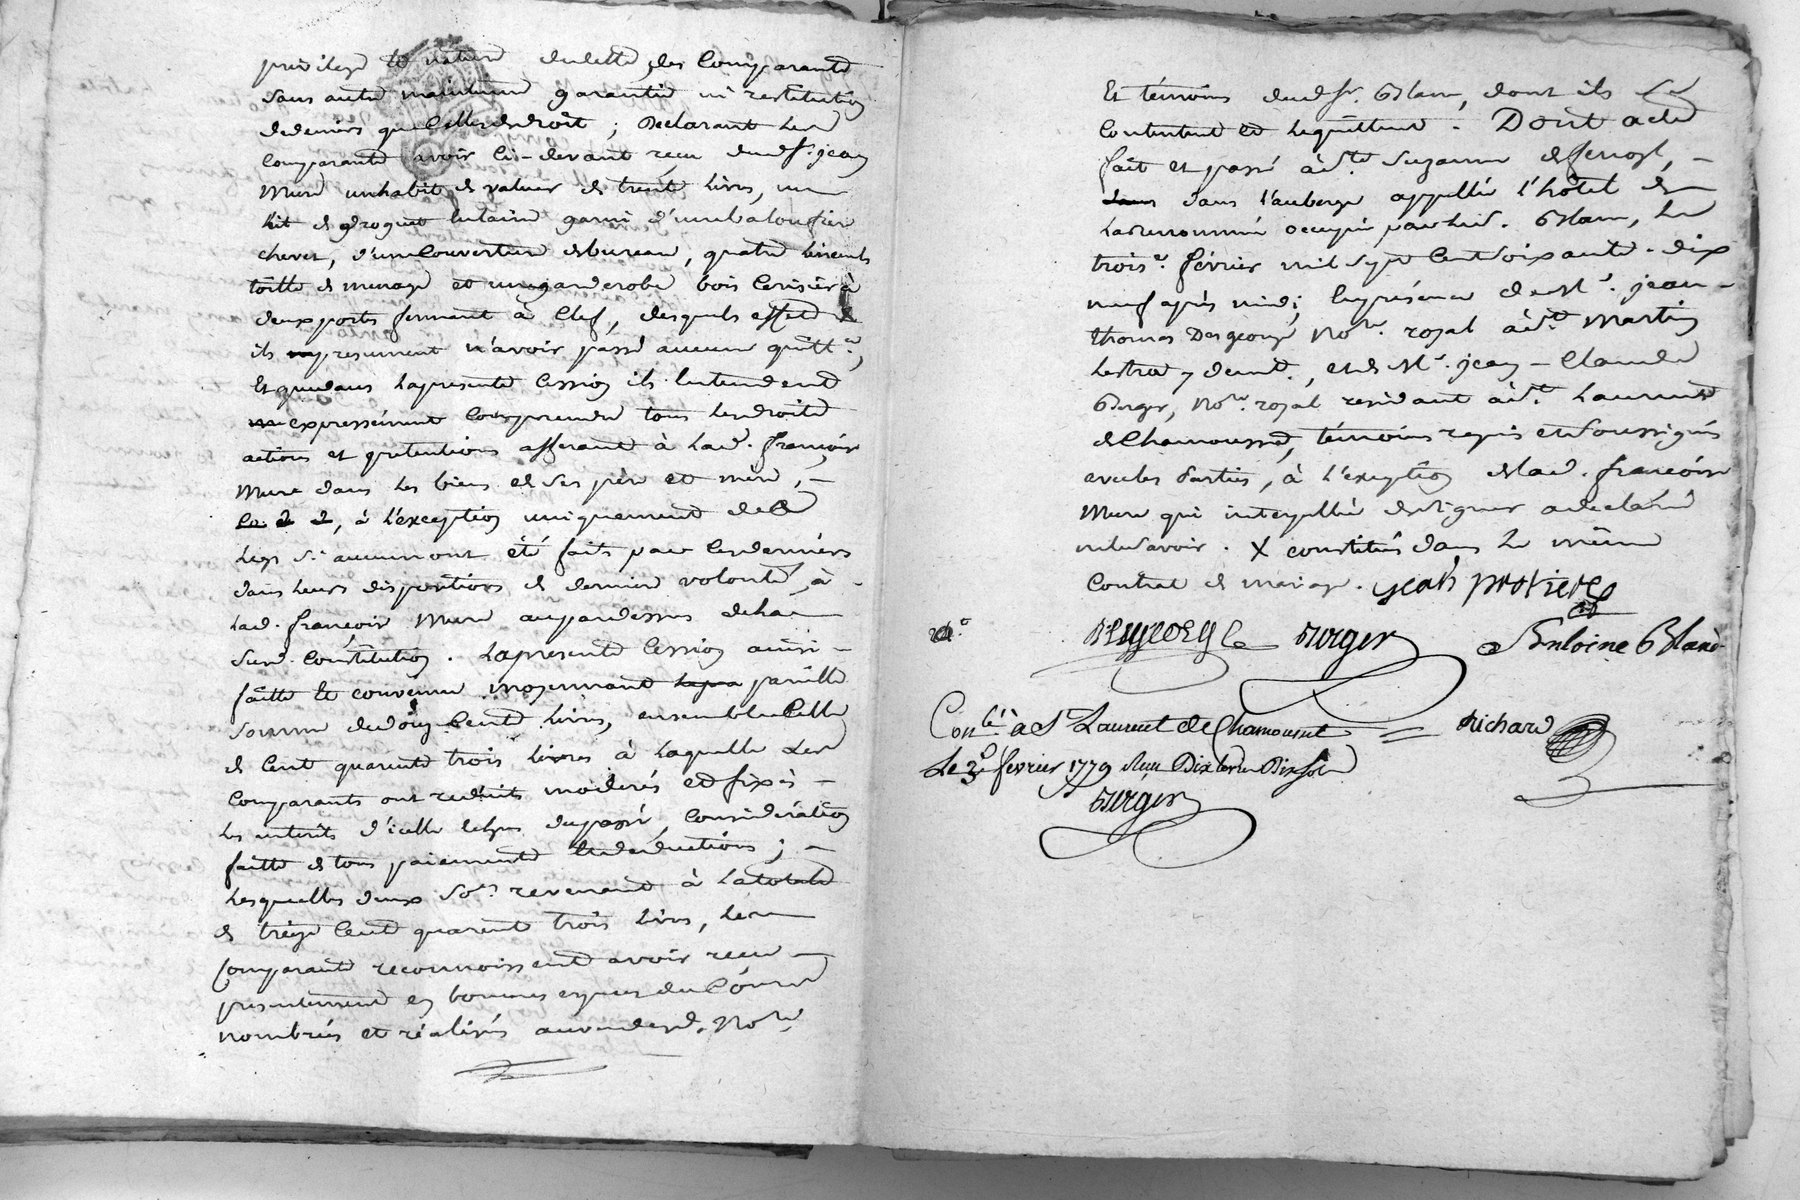 privilege et nature de dette des Comparants
sans autre maintenue garantie ni restitution
de deniers que Celle de droit ; Declarant les
Comparants avoir Ci-devant reçu dud. sr. jean
Mure un habit de valeur de trente Livres, un
Lit de garni d'un
chevet, d'une Couverture de bureau, quatre Linceuls
toille de menage et une garderobe bois Cerisier à
deux portes fermant à Clef, desquels effets X
ils presument n'avoir passé aucune quitt.ce,
Et que dans La presente Cession ils Entendent
expressément Comprendre tous Les droits
actions et pretentions afferant à Lad. françoise
Mure dans Les biens de Ses père et mère, –
, à L'exception uniquement de
Legs Si aucun ont été faits par Ces derniers
dans Leurs dispositions de derniere volonté, à –
Lad. françoise Mure au par dessus de La
Susd. Constitution. La presente Cession ainsi –
faitte Et convenue moyennant pareille
Somme de douze Cents Livres, ensemble Celle
de Cent quarente trois Livres à Laquelle Les
Comparants ont reduits moderés et fixés –
Les interets d'icelle du passé, Considération
faitte de tous paiements Et deductions ; –
Lesquelles deux So.es revenant à La totale
de treize Cent quarente trois Livres, Les
Comparants reconnoissent avoir reçu –
presentement en bonnes especes du Cours
nombrées et réalisées au vu desd. No.res
Et témoins dud. sr. Blanc, dont ils Se
Contentent et L'equittent. Dont acte
fait et passé à Ste. Suzanne –
dans l'auberge appellée L'hôtel de
La Renommée occupée par Led. Blanc, Le
trois.e février mil Sept Cent Soixante-dix
neuf après midi ; En présence de Me. jean –
thomas Desgeorge No.re royal à St. Martin
Lestra y demt., et de Me. jean – Claude
Berger, No.re royal residant à St. Laurent
de Chamousset, témoins requis et Soussignés
avec les Parties, à l'exception de Lad. françoise
Mure qui interpellée de Signer a declaré
ne le Savoir. X constitués dans Le même
Contrat de mariage. jean protiere
Berger Antoine Blanc
Con.lé à St Laurent de Chamousset = Richard
Le février 1779 Reçu Dix
Berger